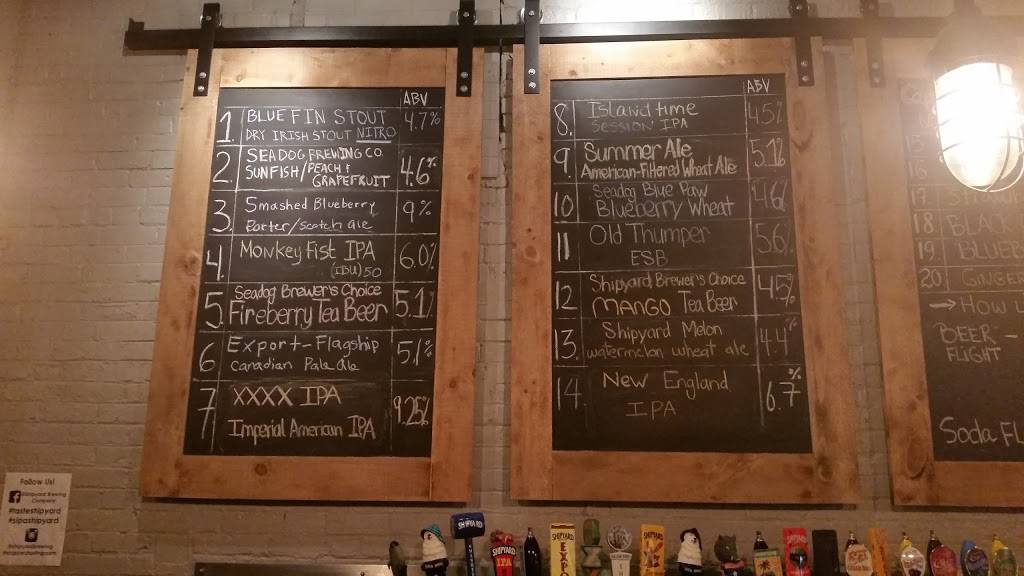 ABV
1 BLUE FIN STOUT 4.7%
DRY IRISH STOUT NITRO
2 SEADOG BREWING CO. 4.6%
SUNFISH/PEACH &
GRAPEFRUIT
3. Smashed Blueberry 9%
Porter/Scotch ale
4. Monkey Fist IPA 6.0%
(IBU) 50
5. Seadog Brewer's Choice 5.1%
Fireberry Tea Beer
6 Export-Flagship 5.1%
Canadian Pale Ale
7 XXXX IPA 9.25%
Imperial American IPA
ABV
8. Island time 4.5%
SESSION IPA
9. Summer Ale 5.1%
American-Filtered Wheat Ale
10 Seadog Blue Paw 4.6%
Blueberry Wheat
11 Old Thumper 5.6%
ESB
12 Shipyard Brewer's Choice 4.5%
MANGO Tea Beer
13. Shipyard Melon 4.4%
watermelon wheat ale
14. New England 6.7%
IPA
18 BLACK
19 BLUEB
20 GINGER
→ HOW
BEER-
FLIGHT
Soda FL
Follow Us!
Shipyard Brewing
Company
#tasteshipyard
#sipashipyard
SHIPYARD
SHIPYARD
IPA
EXPO
SHIPYARD